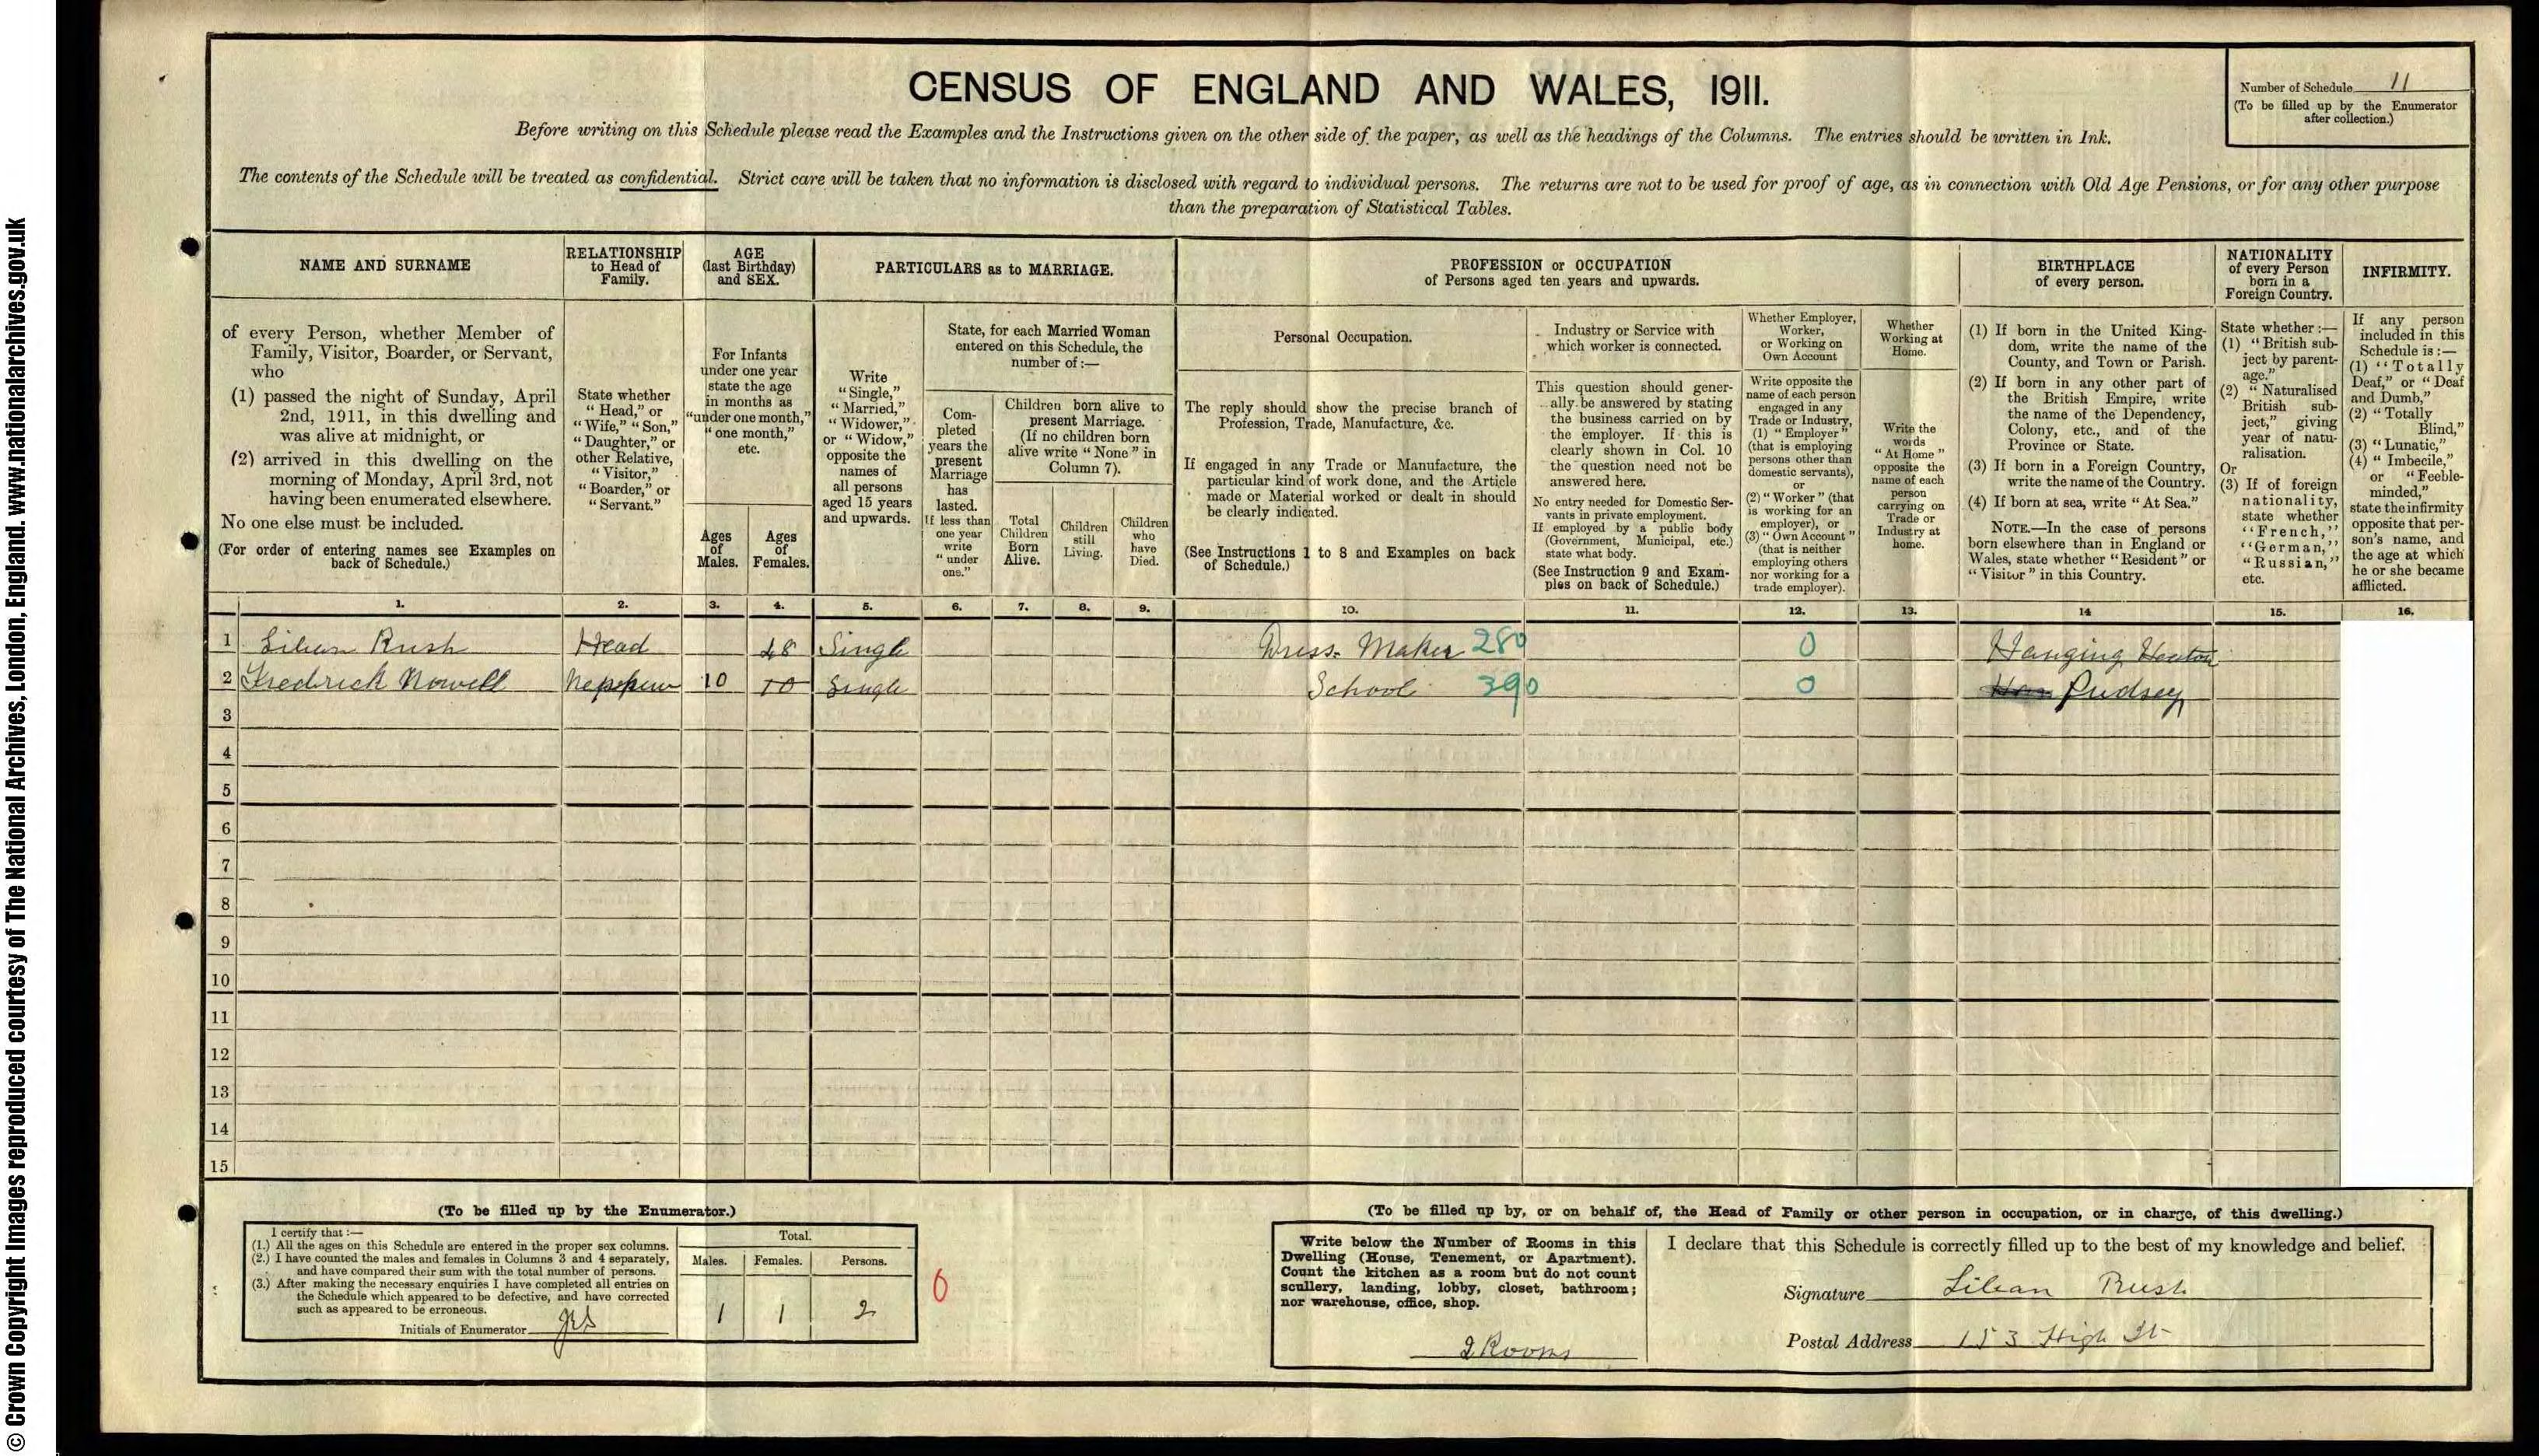 © Crown Copyright Images reproduced courtesy of The National Archives, London, England. www.nationalarchives.gov.uk
CENSUS OF ENGLAND AND WALES, 1911.
Number of Schedule 11
(To be filled up by the Enumerator
after collection.)
Before writing on this Schedule please read the Examples and the Instructions given on the other side of the paper, as well as the headings of the Columns. The entries should be written in Ink.
The contents of the Schedule will be treated as confidential. Strict care will be taken that no information is disclosed with regard to individual persons. The returns are not to be used for proof of age, as in connection with Old Age Pensions, or for any other purpose
than the preparation of Statistical Tables.
NAME AND SURNAME
of every Person, whether Member of
Family, Visitor, Boarder, or Servant,
who
(1) passed the night of Sunday, April
2nd, 1911, in this dwelling and
was alive at midnight, or
(2) arrived in this dwelling on the
morning of Monday, April 3rd, not
having been enumerated elsewhere.
No one else must be included.
(For order of entering names see Examples on
back of Schedule.)
RELATIONSHIP
to Head of
Family.
State whether
"Head," or
"Wife," "Son,"
"Daughter," or
other Relative,
"Visitor,"
"Boarder," or
"Servant."
AGE
(last Birthday)
and SEX.
For Infants
under one year
state the age
in months as
"under one month,"
"one month,"
etc.
Ages
of
Males.
Ages
of
Females.
PARTICULARS as to MARRIAGE.
Write
"Single,"
"Married,"
"Widower,"
or "Widow,"
opposite the
names of
all persons
aged 15 years
and upwards.
State, for each Married Woman
entered on this Schedule, the
number of:—
Com-
pleted
years the
present
Marriage
has
lasted.
If less than
one year
write
"under
one."
Children born alive to
present Marriage.
(If no children born
alive write "None" in
Column 7).
Total
Children
Born
Alive.
Children
still
Living.
Children
who
have
Died.
PROFESSION or OCCUPATION
of Persons aged ten years and upwards.
Personal Occupation.
The reply should show the precise branch of
Profession, Trade, Manufacture, &c.
If engaged in any Trade or Manufacture, the
particular kind of work done, and the Article
made or Material worked or dealt in should
be clearly indicated.
(See Instructions 1 to 8 and Examples on back
of Schedule.)
Industry or Service with
which worker is connected.
This question should gener-
ally be answered by stating
the business carried on by
the employer. If this is
clearly shown in Col. 10
the question need not be
answered here.
No entry needed for Domestic Ser-
vants in private employment.
If employed by a public body
(Government, Municipal, etc.)
state what body.
(See Instruction 9 and Exam-
ples on back of Schedule.)
Whether Employer,
Worker,
or Working on
Own Account
Write opposite the
name of each person
engaged in any
Trade or Industry,
(1) "Employer"
(that is employing
persons other than
domestic servants),
or
(2) "Worker" (that
is working for an
employer), or
(3) "Own Account"
(that is neither
employing others
nor working for a
trade employer).
Whether
Working at
Home.
Write the
words
"At Home"
opposite the
name of each
person
carrying on
Trade or
Industry at
home.
BIRTHPLACE
of every person.
(1) If born in the United King-
dom, write the name of the
County, and Town or Parish.
(2) If born in any other part of
the British Empire, write
the name of the Dependency,
Colony, etc., and of the
Province or State.
(3) If born in a Foreign Country,
write the name of the Country.
(4) If born at sea, write "At Sea."
NOTE.—In the case of persons
born elsewhere than in England or
Wales, state whether "Resident" or
"Visitor" in this Country.
NATIONALITY
of every Person
born in a
Foreign Country.
State whether:—
(1) "British sub-
ject by parent-
age."
(2) "Naturalised
British sub-
ject," giving
year of natu-
ralisation.
Or
(3) If of foreign
nationality,
state whether
"French,"
"German,"
"Russian,"
etc.
INFIRMITY.
If any person
included in this
Schedule is:—
(1) "Totally
Deaf," or "Deaf
and Dumb,"
(2) "Totally
Blind,"
(3) "Lunatic,"
(4) "Imbecile,"
or "Feeble-
minded,"
state the infirmity
opposite that per-
son's name, and
the age at which
he or she became
afflicted.
1. 2. 3. 4. 5. 6. 7. 8. 9. 10. 11. 12. 13. 14 15. 16.
1 Lilian Rush Head 48 Single Dress Maker 280 0 Hanging Heaton
2 Fredrick Nowell Nephew 10 10 Single School 390 0 Pudsey
3
4
5
6
7
8
9
10
11
12
13
14
15
(To be filled up by the Enumerator.)
I certify that:—
(1.) All the ages on this Schedule are entered in the proper sex columns.
(2.) I have counted the males and females in Columns 3 and 4 separately,
and have compared their sum with the total number of persons.
(3.) After making the necessary enquiries I have completed all entries on
the Schedule which appeared to be defective, and have corrected
such as appeared to be erroneous.
Initials of Enumerator
Total.
Males. Females. Persons.
1 1 2
0
(To be filled up by, or on behalf of, the Head of Family or other person in occupation, or in charge, of this dwelling.)
Write below the Number of Rooms in this
Dwelling (House, Tenement, or Apartment).
Count the kitchen as a room but do not count
scullery, landing, lobby, closet, bathroom;
nor warehouse, office, shop.
2 Rooms
I declare that this Schedule is correctly filled up to the best of my knowledge and belief.
Signature Lilian Rush
Postal Address 153 High St